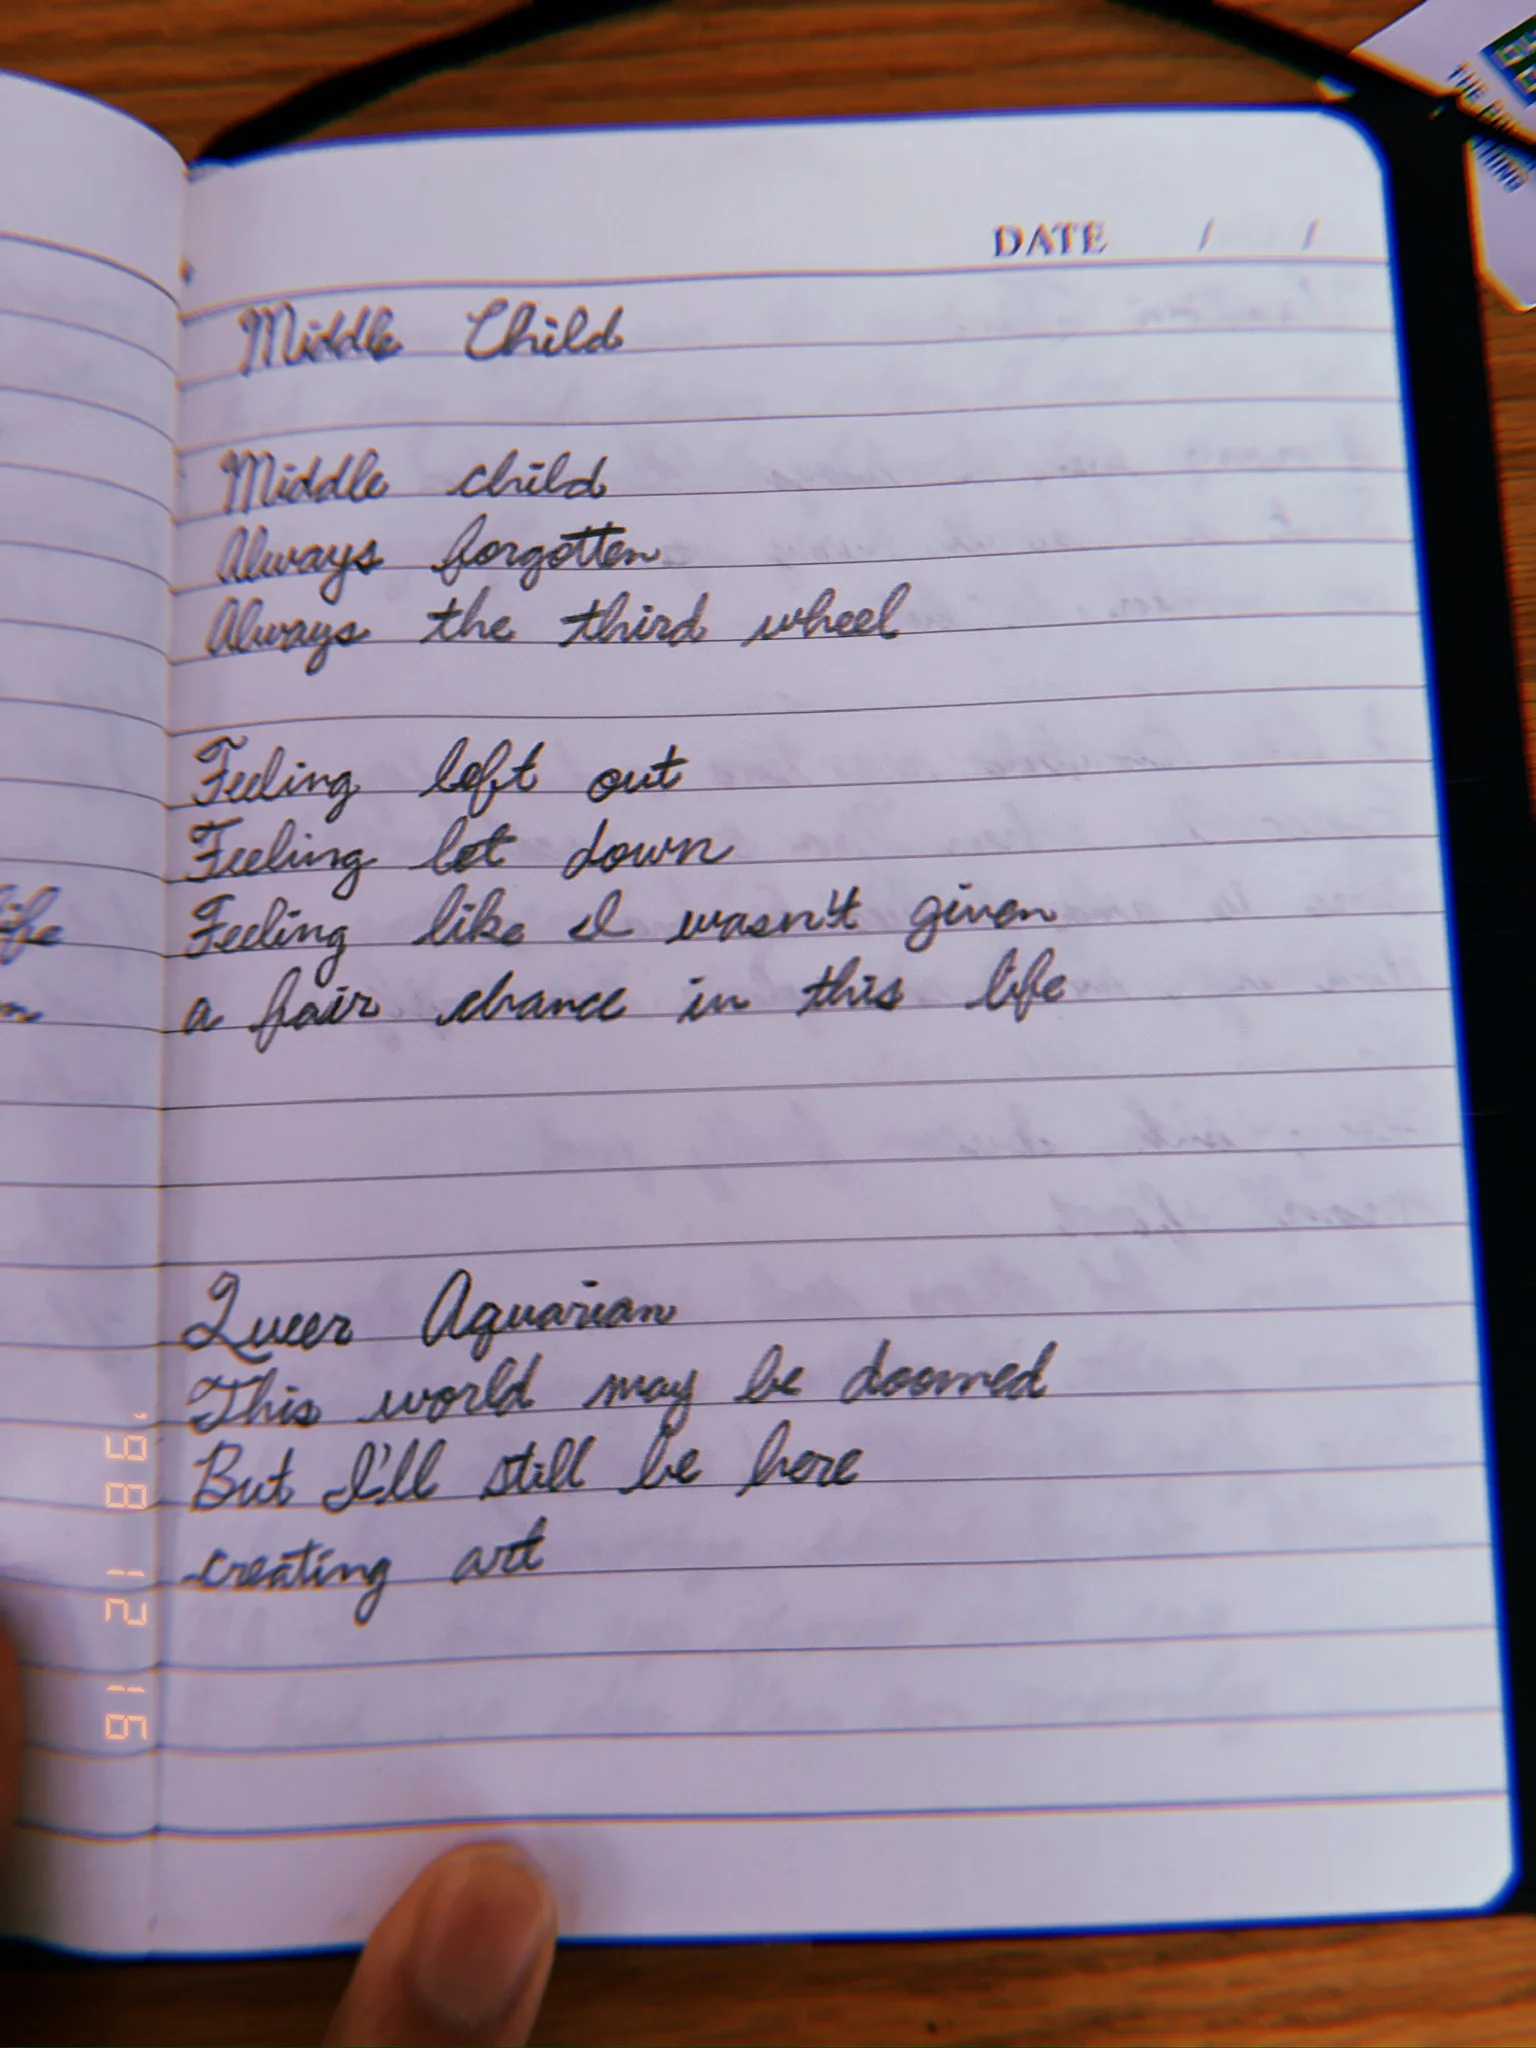 DATE / /
Middle Child
Middle child
Always forgotten
Always the third wheel
Feeling left out
Feeling let down
Feeling like I wasn't given
a fair chance in this life
Queer Aquarian
This world may be doomed
But I'll still be here
creating art
life
THE
'98 12 16